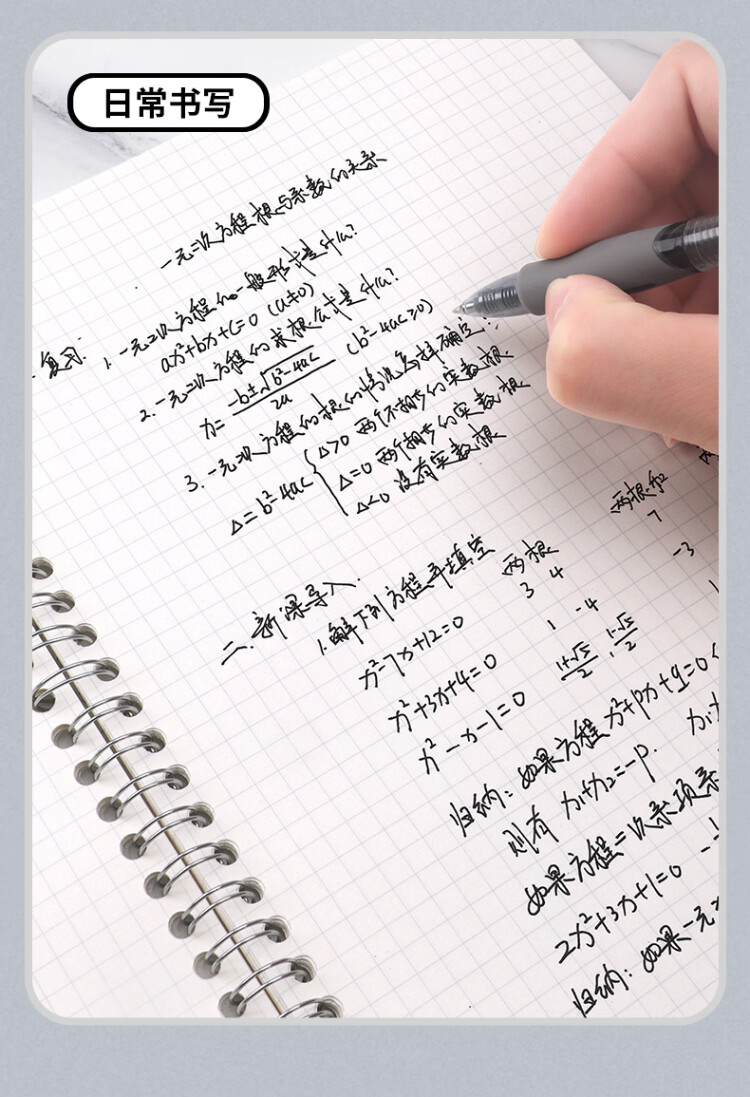 日常书写
一元二次方程根与系数的关系
一、复习: 1. 一元二次方程的一般形式是什么?
ax²+bx+c=0 (a≠0)
2. 一元二次方程的求根公式是什么?
x= -b±√b²-4ac / 2a (b²-4ac≥0)
3. 一元二次方程的根的情况怎样确定?
Δ=b²-4ac { Δ>0 两个不相等的实数根
Δ=0 两个相等的实数根
Δ<0 没有实数根
二. 新课导入:
1. 解下列方程并填空
两根 两根和
x²-7x+12=0 3 4 7
x²+3x+4=0 1 -4 -3
x²-x-1=0 1+√5/2, 1-√5/2 1
归纳: 如果方程x²+px+q=0
则有 x₁+x₂=-p.
如果方程二次系项系
2x²+3x+1=0
归纳: 如果一元